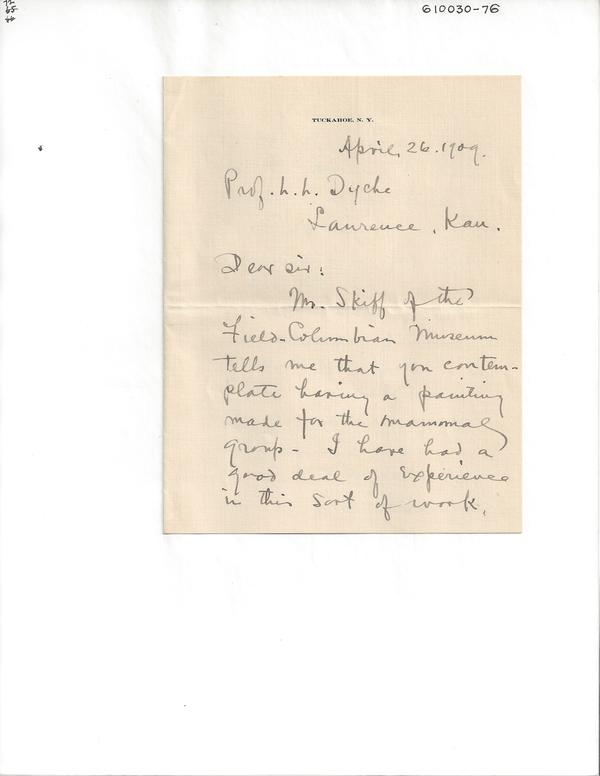 610030-76
TUCKAHOE, N. Y.
April, 26. 1909.
Prof. L. L. Dyche
Laurence, Kan.
Dear sir:
Mr. Skiff of the
Field-Columbian Museum
tells me that you contem-
plate having a painting
made for the mammal
group - I have had a
good deal of experience
in this sort of work.